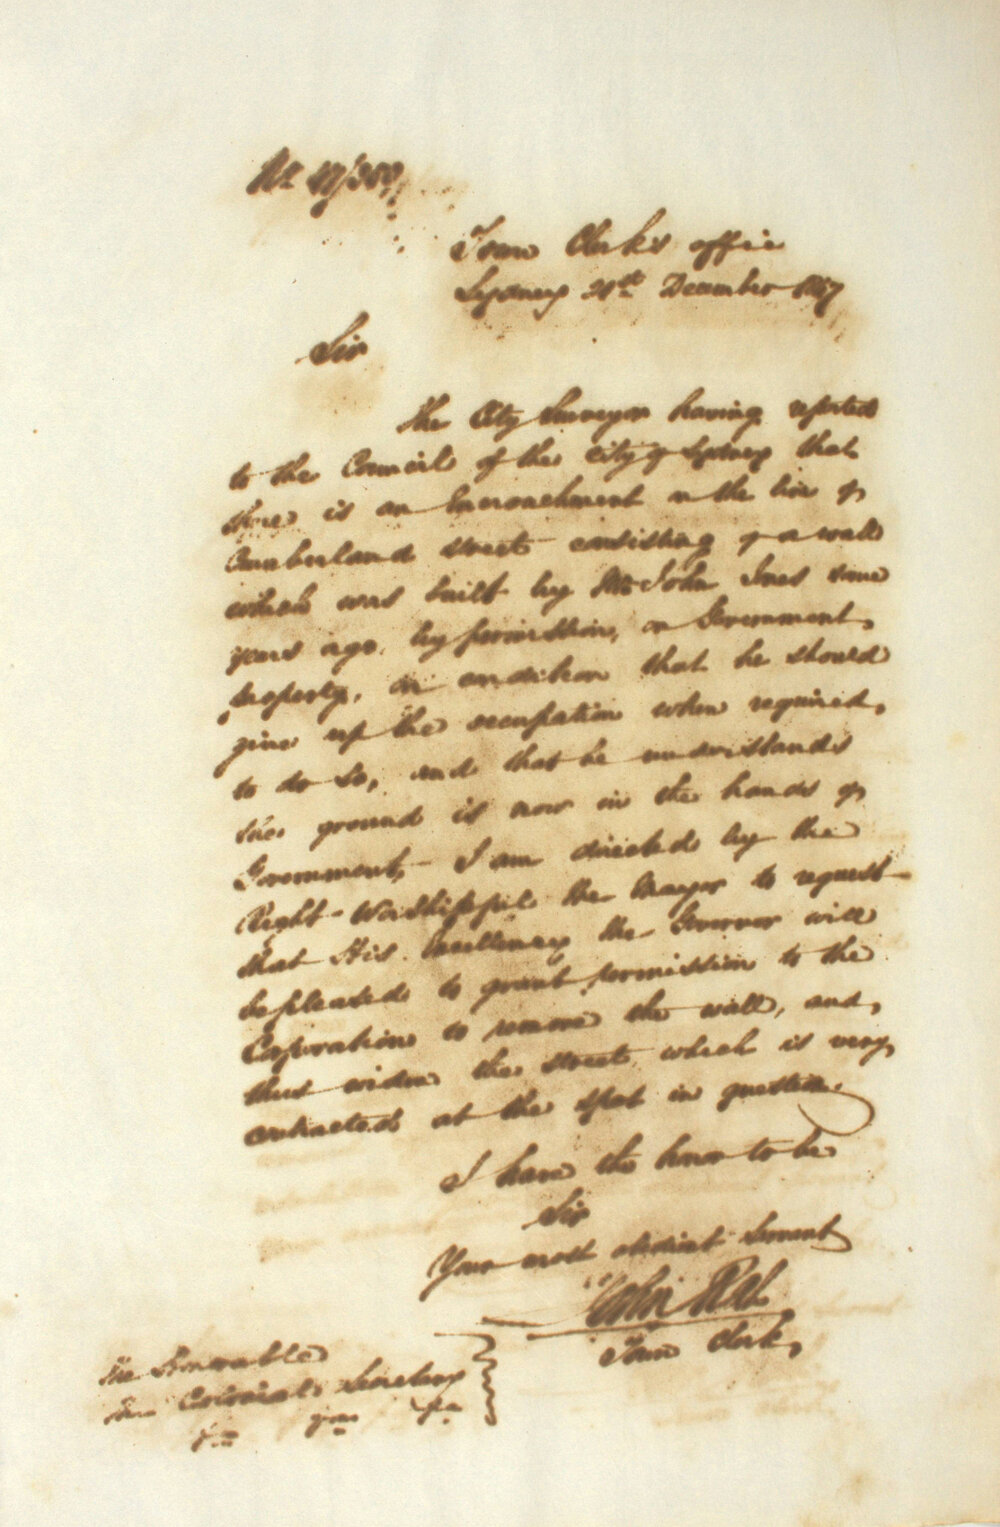 No 47/350
Town Clerk's office
Sydney 21st December 1847
Sir
The City Surveyor having reported
to the Council of the City of Sydney that
there is an Encroachment on the line of
Cumberland street consisting of a wall
which was built by Mr John Ines some
years ago, by permission, on Government
property, on condition that he should
give up the occupation when required,
to do so, and that he understands
the ground is now in the hands of
Government, I am directed by the
Right Worshipful the Mayor to request
that His Excellency the Governor will
be pleased to grant permission to the
Corporation to remove the wall, and,
thus widen the street which is very
contracted at the spot in question.
I have the honor to be
Sir
Your most obedient Servant
John Rae
Town Clerk,
The Honorable
The Colonial Secretary